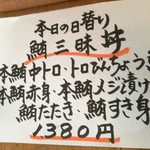 本日の日替り
鮪三昧丼
本鮪中トロ・トロびんちょう鮪
本鮪赤身・本鮪メジ漬け
鮪たたき・鮪すき身
1380円